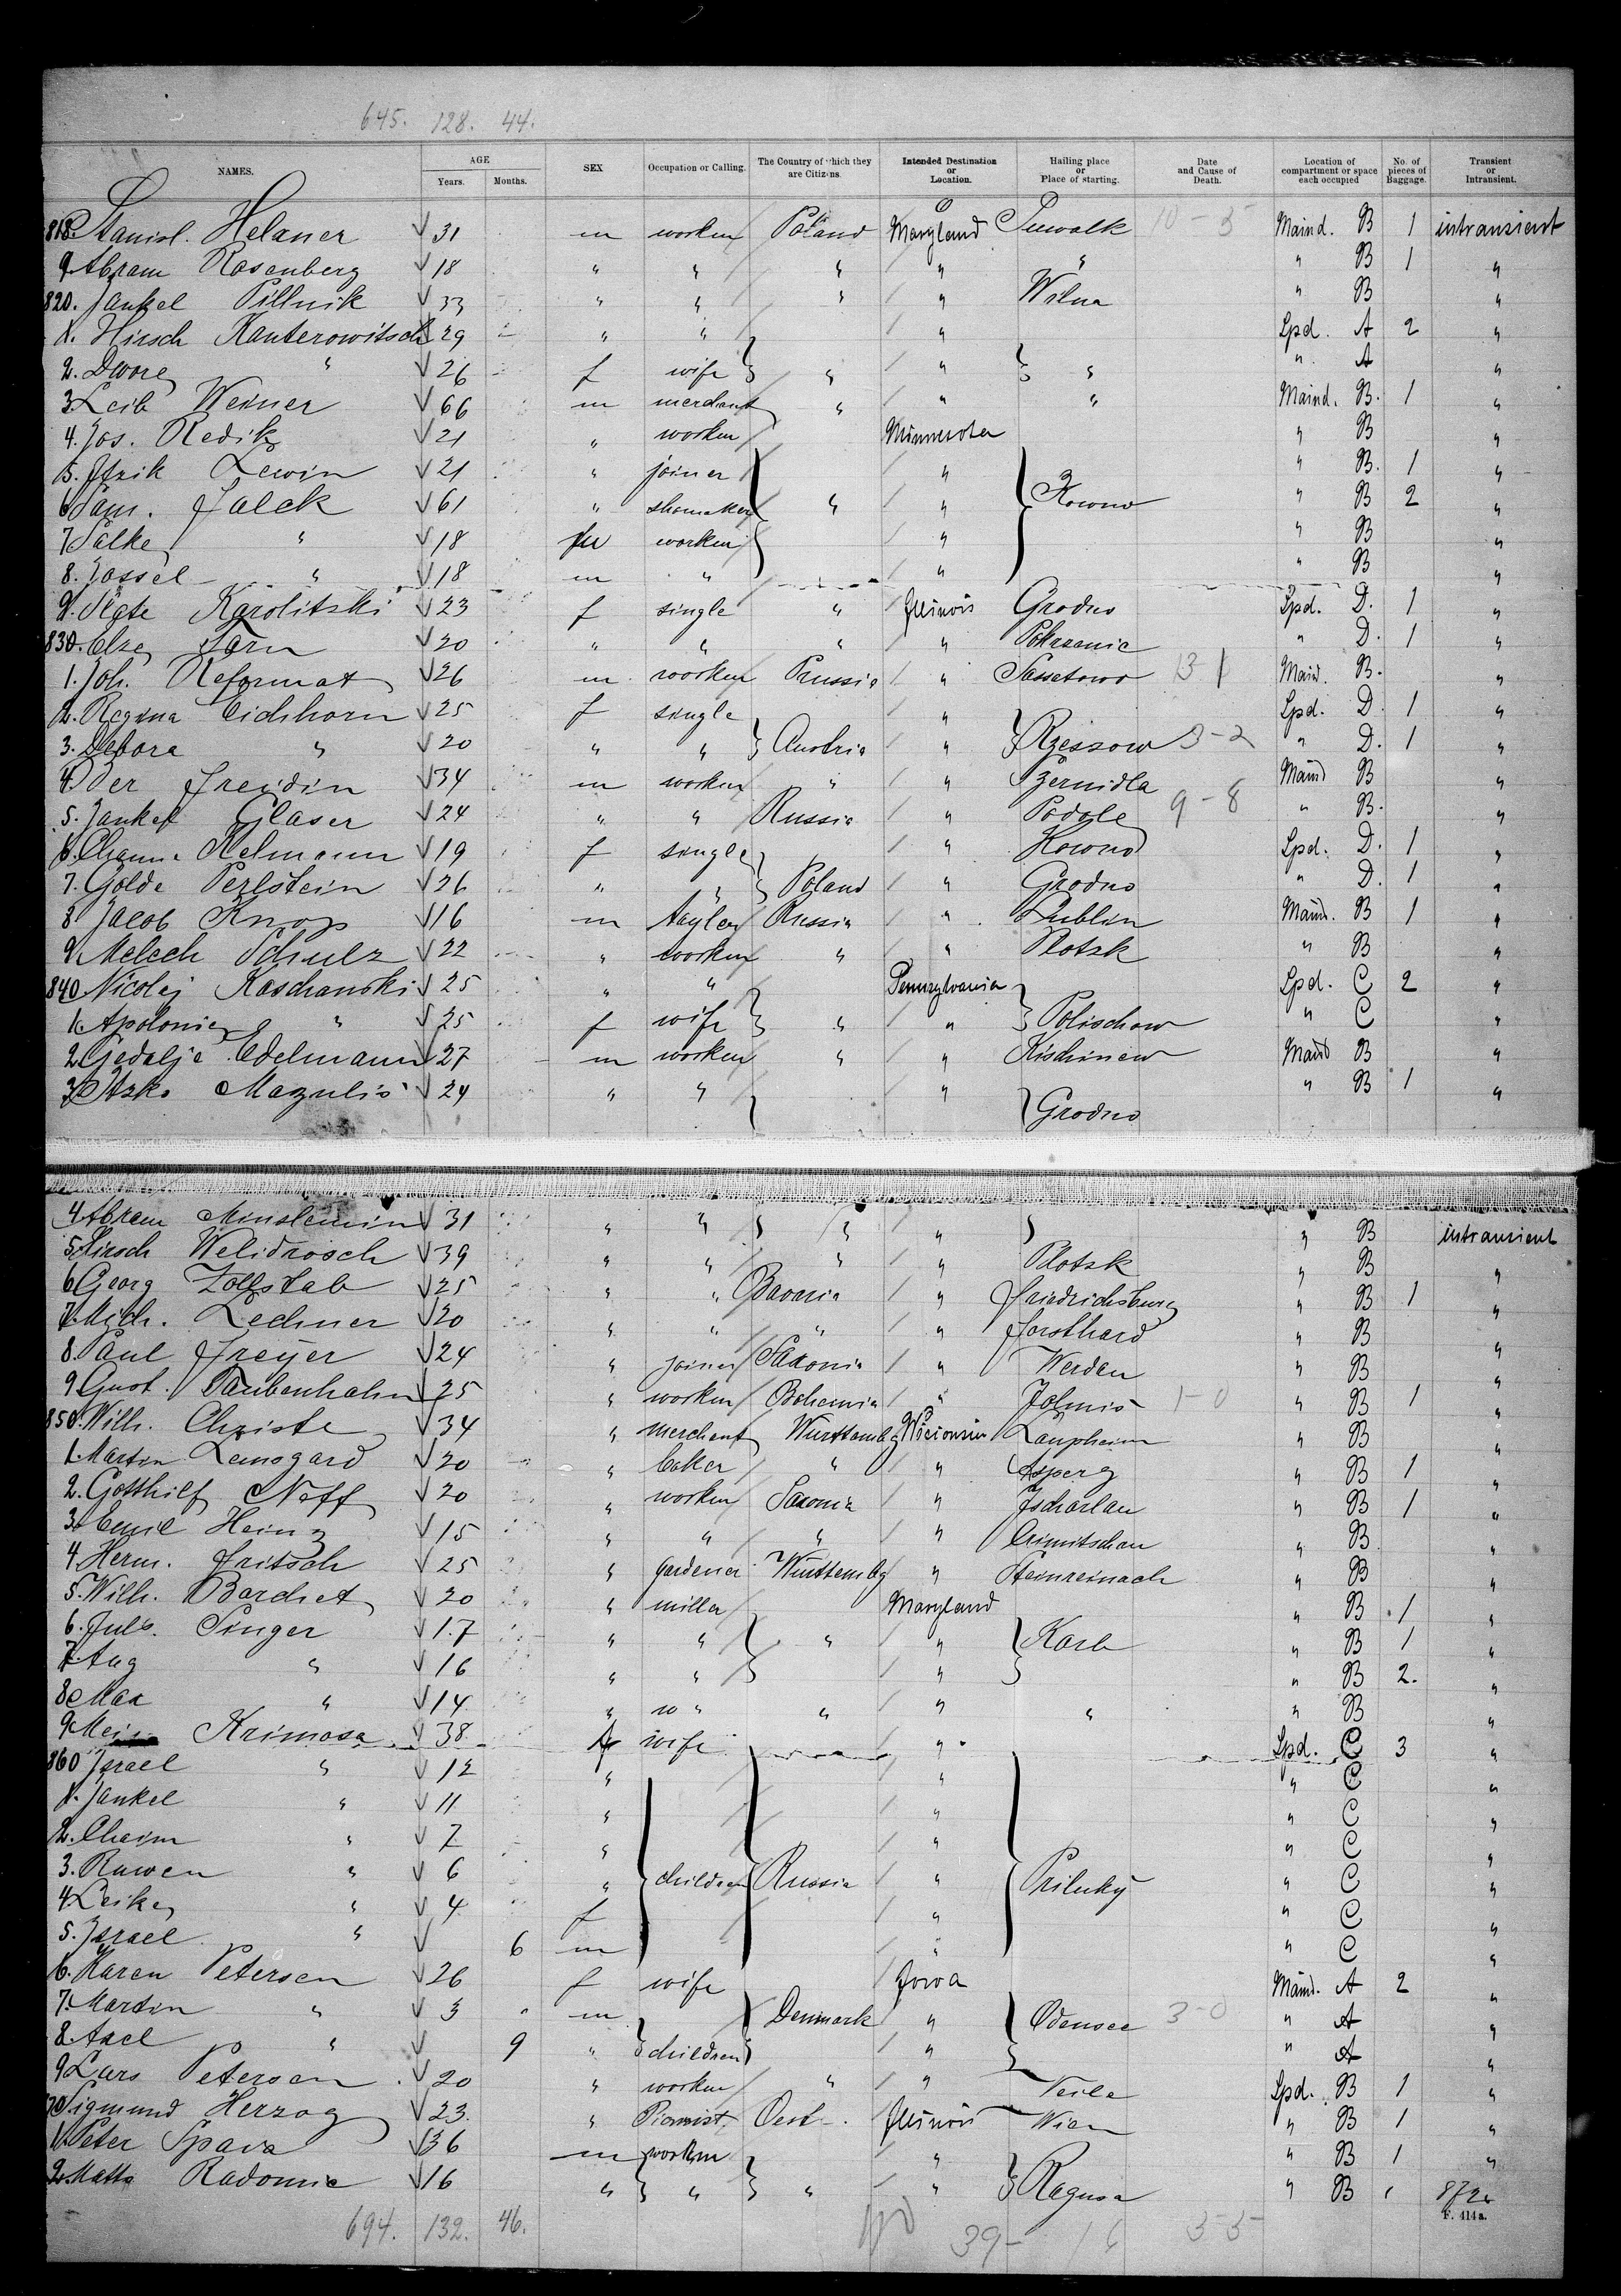 645. 128. 44.
NAMES. AGE Years. Months. SEX Occupation or Calling. The Country of which they are Citizens. Intended Destination or Location. Hailing place or Place of starting. Date and Cause of Death. Location of compartment or space each occupied No. of pieces of Baggage. Transient or Intransient.
818. Stanisl. Helaner 31 m worker Poland Maryland Suwalk 10-5 Maind. B 1 intransient
9. Abram Rosenberg 18 " " " " " " B 1 "
820. Jankel Pillnik 33 " " " " Wilna " B "
1. Hirsch Kanterowitsch 29 " " " Spd. A 2 "
2. Dwore " 26 f wife " " " " A "
3. Leib Weiner 66 m merchant " " " Maind. B. 1 "
4. Jos. Redik 21 " worker Minnesota " B "
5. Itzik Lewin 21 " joiner " " B. 1 "
6. Sam. Jalck 61 " shomaker " " Kowno " B 2 "
7. Salke " 18 worker " " B "
8. Jossel " 18 m " " " B "
9. Slate Karolitski 23 f single " Illinois Grodno Spd. D. 1 "
830. Else Tarn 20 " " " " " D. 1 "
1. Joh. Reformat 26 m worker Prussia " Sassetowo 13 1 Maind. B. "
2. Regina Eichhorn 25 f single " Spd. D. 1 "
3. Debora " 20 " " Austria " Rzeszow 3-2 " D. 1 "
4. Ber Freidin 34 m worker " " Maind B "
5. Jankel Glaser 24 " " Russia " Podole 9-8 " B. "
6. Channe Kelmann 19 f single " Kowno Spd. D. 1 "
7. Golde Perlstein 26 " " Poland " Grodno " D. 1 "
8 Jacob Knop 16 m taylor Russia " Lublin Maind. B 1 "
9 Melech Schulz 22 " worker " " Plotsk " B "
840 Nicolej Kaschanski 25 " " Pennsylvania Spd. C 2 "
1. Apolonie " 25 f wife " " Polischow " C "
2. Gedalje Edelmann 27 m worker " " Kischinew Maind B "
3. Itzko Mazulis 24 " " " Grodno " B 1 "
4. Abram 31 " " " " " B intransient
5. Hirsch Welidrosch 39 " " " " Plotsk " B "
6. Georg Zollstab 25 " " Bavaria " Friedrichsburg " B 1 "
7. Mich. Lechner 20 " " " " Forsthard " B "
8. Paul Freyer 24 " joiner Saxonia " Werdau " B "
9 Gust. Taubenhahn 25 " worker Bohemia " 1-0 " B 1 "
850. Wilh. Christe 34 " merchant Württembg Wisconsin Laupheim " B "
1. Martin Lemsgard 20 " baker " " Asperg " B 1 "
2. Gotthilf Neff 20 " worker Saxonia " Zschorlau " B 1 "
3. Emil Heinz 15 " " " " Crimitschau " B "
4. Herm. Fritsch 25 " gardener Württembg " Steinreinach " B "
5. Wilh. Barchet 20 " miller Maryland " B 1 "
6. Juls. Singer 17 " " " " Karb " B 1 "
7. Aug " 16 " " " " B 2. "
8. Max " 14 " " " " " B "
9. Krimosa 38 wife " Spd. C 3 "
860 Israel " 12 " " " C "
1. Jankel " 11 " " " C "
2. Chaim " 7 " " " C "
3. Ruwen " 6 " children Russia " Priluky " C "
4. Leike " 4 f " " C "
5. Israel " 6 m " " C "
6. Karen Petersen 26 f wife Iowa Maind. A 2 "
7. Martin " 3 m Denmark " Odensee 3-0 " A "
8. Axel " 9 " children " " A "
9. Lars Petersen 20 " worker " " Veile Spd. B 1 "
70. Sigmund Herzog 23. " Pianist Oest. Illinois Wien " B 1 "
1. Peter Spara 36 m worker " " B 1 "
2. Matto Radomie 16 " " " " Ragusa " B 872.
694. 132. 46. 39- 16 3-5
F. 414a.